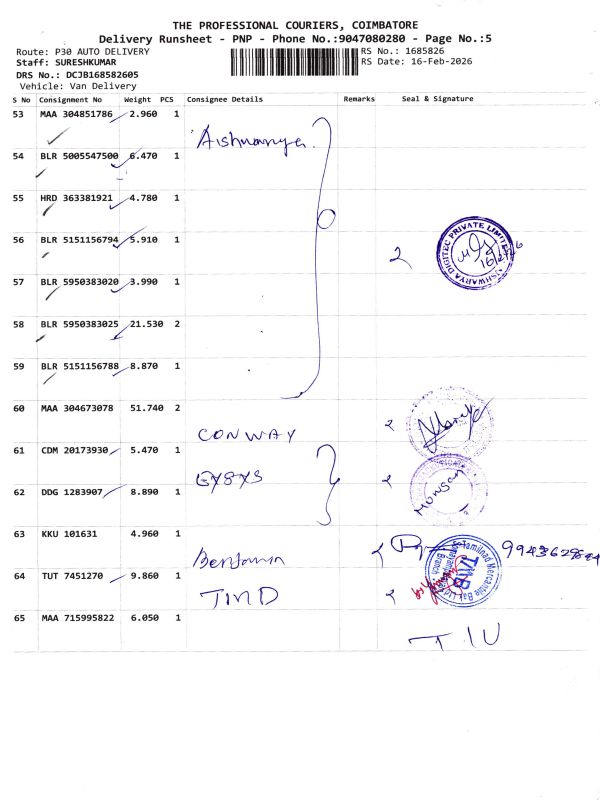 THE PROFESSIONAL COURIERS, COIMBATORE
Delivery Runsheet - PNP - Phone No.:9047080280 - Page No.:5
Route: P30 AUTO DELIVERY
RS No.: 1685826
Staff: SURESHKUMAR
RS Date: 16-Feb-2026
DRS No.: DCJB168582605
Vehicle: Van Delivery
S No Consignment No Weight PCS Consignee Details Remarks Seal & Signature
53 MAA 304851786 2.960 1
Aishwarya
54 BLR 5005547500 6.470 1
55 HRD 363381921 4.780 1
56 BLR 5151156794 5.910 1
AISHWARYA DIGITEC PRIVATE LIMITED
57 BLR 5950383020 3.990 1
58 BLR 5950383025 21.530 2
59 BLR 5151156788 8.870 1
60 MAA 304673078 51.740 2
CONWAY
61 CDM 20173930 5.470 1
62 DDG 1283907 8.890 1
63 KKU 101631 4.960 1
Benjamin
64 TUT 7451270 9.860 1
TMB
Tamilnad Mercantile Bank Ltd
Branch
65 MAA 715995822 6.050 1